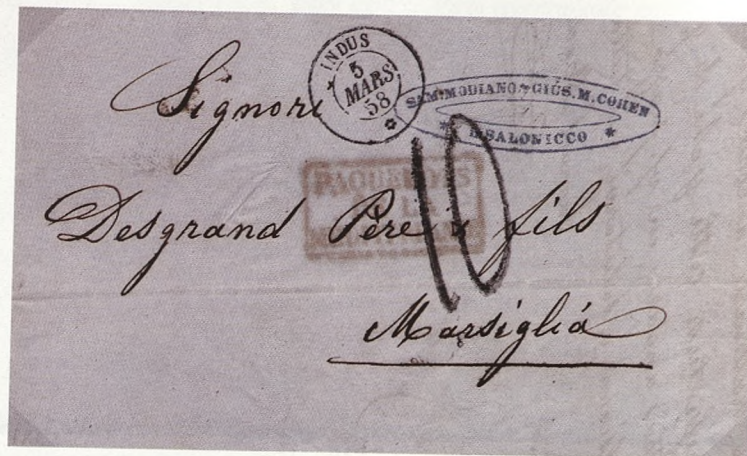 INDUS
5
MARS
58
SAM: MODIANO & GIUS. M. COHEN
SALONICCO
Signori
PAQUEBOTS
10
Desgrand Père & fils
Marsiglia